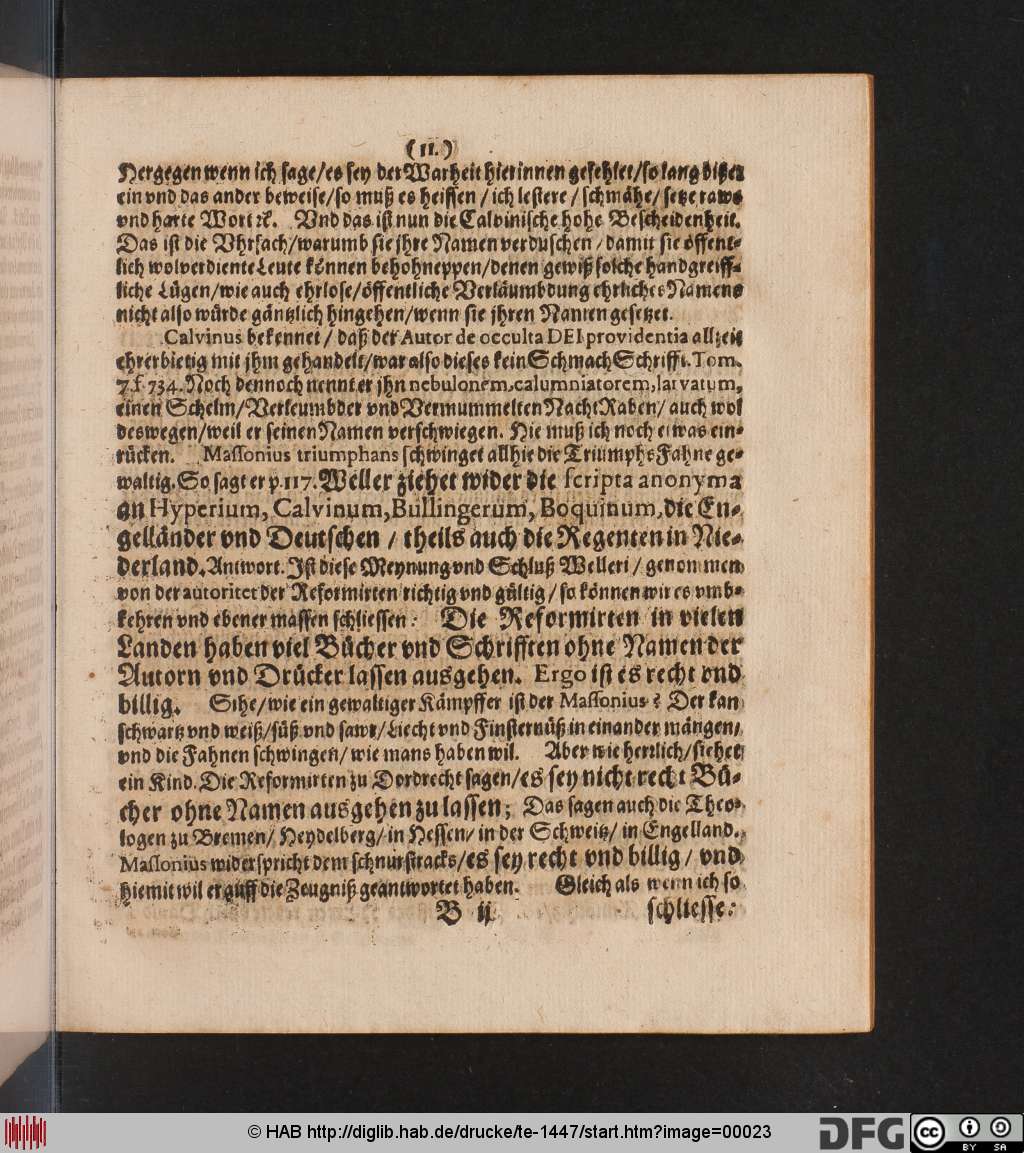 (11.)
Hergegen wenn ich sage/es sey der Warheit hierinnen gefehlet/so lang bitzel
ein vnd das ander beweise/so muß es heissen / ich lestere / schmähe/ setze rawe
vnd harte Wort ꝛc. Vnd das ist nun die Calvinische hohe Bescheidenheit.
Das ist die Vhrsach/warumb sie jhre Namen verduschen / damit sie öffent-
lich wolverdiente Leute können behohneppen/denen gewiß solche handgreiff-
liche Lügen/wie auch ehrlose/öffentliche Verläumbdung ehrliches Namens
nicht also würde gäntzlich hingehen/wenn sie jhren Namen gesetzet.
Calvinus bekennet / daß der Autor de occulta DEI providentia allzeit
ehrerbietig mit jhm gehandelt/war also dieses kein Schmach Schrifft. Tom.
7. f. 734. Noch dennoch nennt er jhn nebulonem, calumniatorem, larvatum,
einen Schelm/Verleumbder vnd Vermummelten NachtRaben/ auch wol
deswegen/weil er seinen Namen verschwiegen. Hie muß ich noch etwas ein-
rücken. Massonius triumphans schwinget allhie die Triumphs Fahne ge-
waltig. So sagt er p. 117. Weller ziehet wider die scripta anonyma
an Hyperium, Calvinum, Bullingerum, Boquinum, die En-
gelländer vnd Deutschen / theils auch die Regenten in Nie-
derland. Antwort. Ist diese Meynung vnd Schluß Welleri / genommen
von der autoritet der Reformirten richtig vnd gültig / so können wir es vmb-
kehren vnd ebener massen schliessen: Die Reformirten in vielen
Landen haben viel Bücher vnd Schrifften ohne Namen der
Autorn vnd Drücker lassen ausgehen. Ergo ist es recht vnd
billig. Sihe/wie ein gewaltiger Kämpffer ist der Massonius? Der kan
schwartz vnd weiß/süß vnd sawr/Liecht vnd Finsternüß in einander mängen/
vnd die Fahnen schwingen/ wie mans haben wil. Aber wie herrlich/siehet
ein Kind. Die Reformirten zu Dordrecht sagen/es sey nicht recht Bü-
cher ohne Namen ausgehen zu lassen; Das sagen auch die Theo-
logen zu Bremen/ Heydelberg/ in Hessen/ in der Schweitz/ in Engelland.
Massonius widerspricht dem schnurstracks/es sey recht vnd billig/ vnd
hiemit wil er auff die Zeugniß geantwortet haben. Gleich als wenn ich so
B ij schliesse:
© HAB http://diglib.hab.de/drucke/te-1447/start.htm?image=00023
DFG
cc BY SA